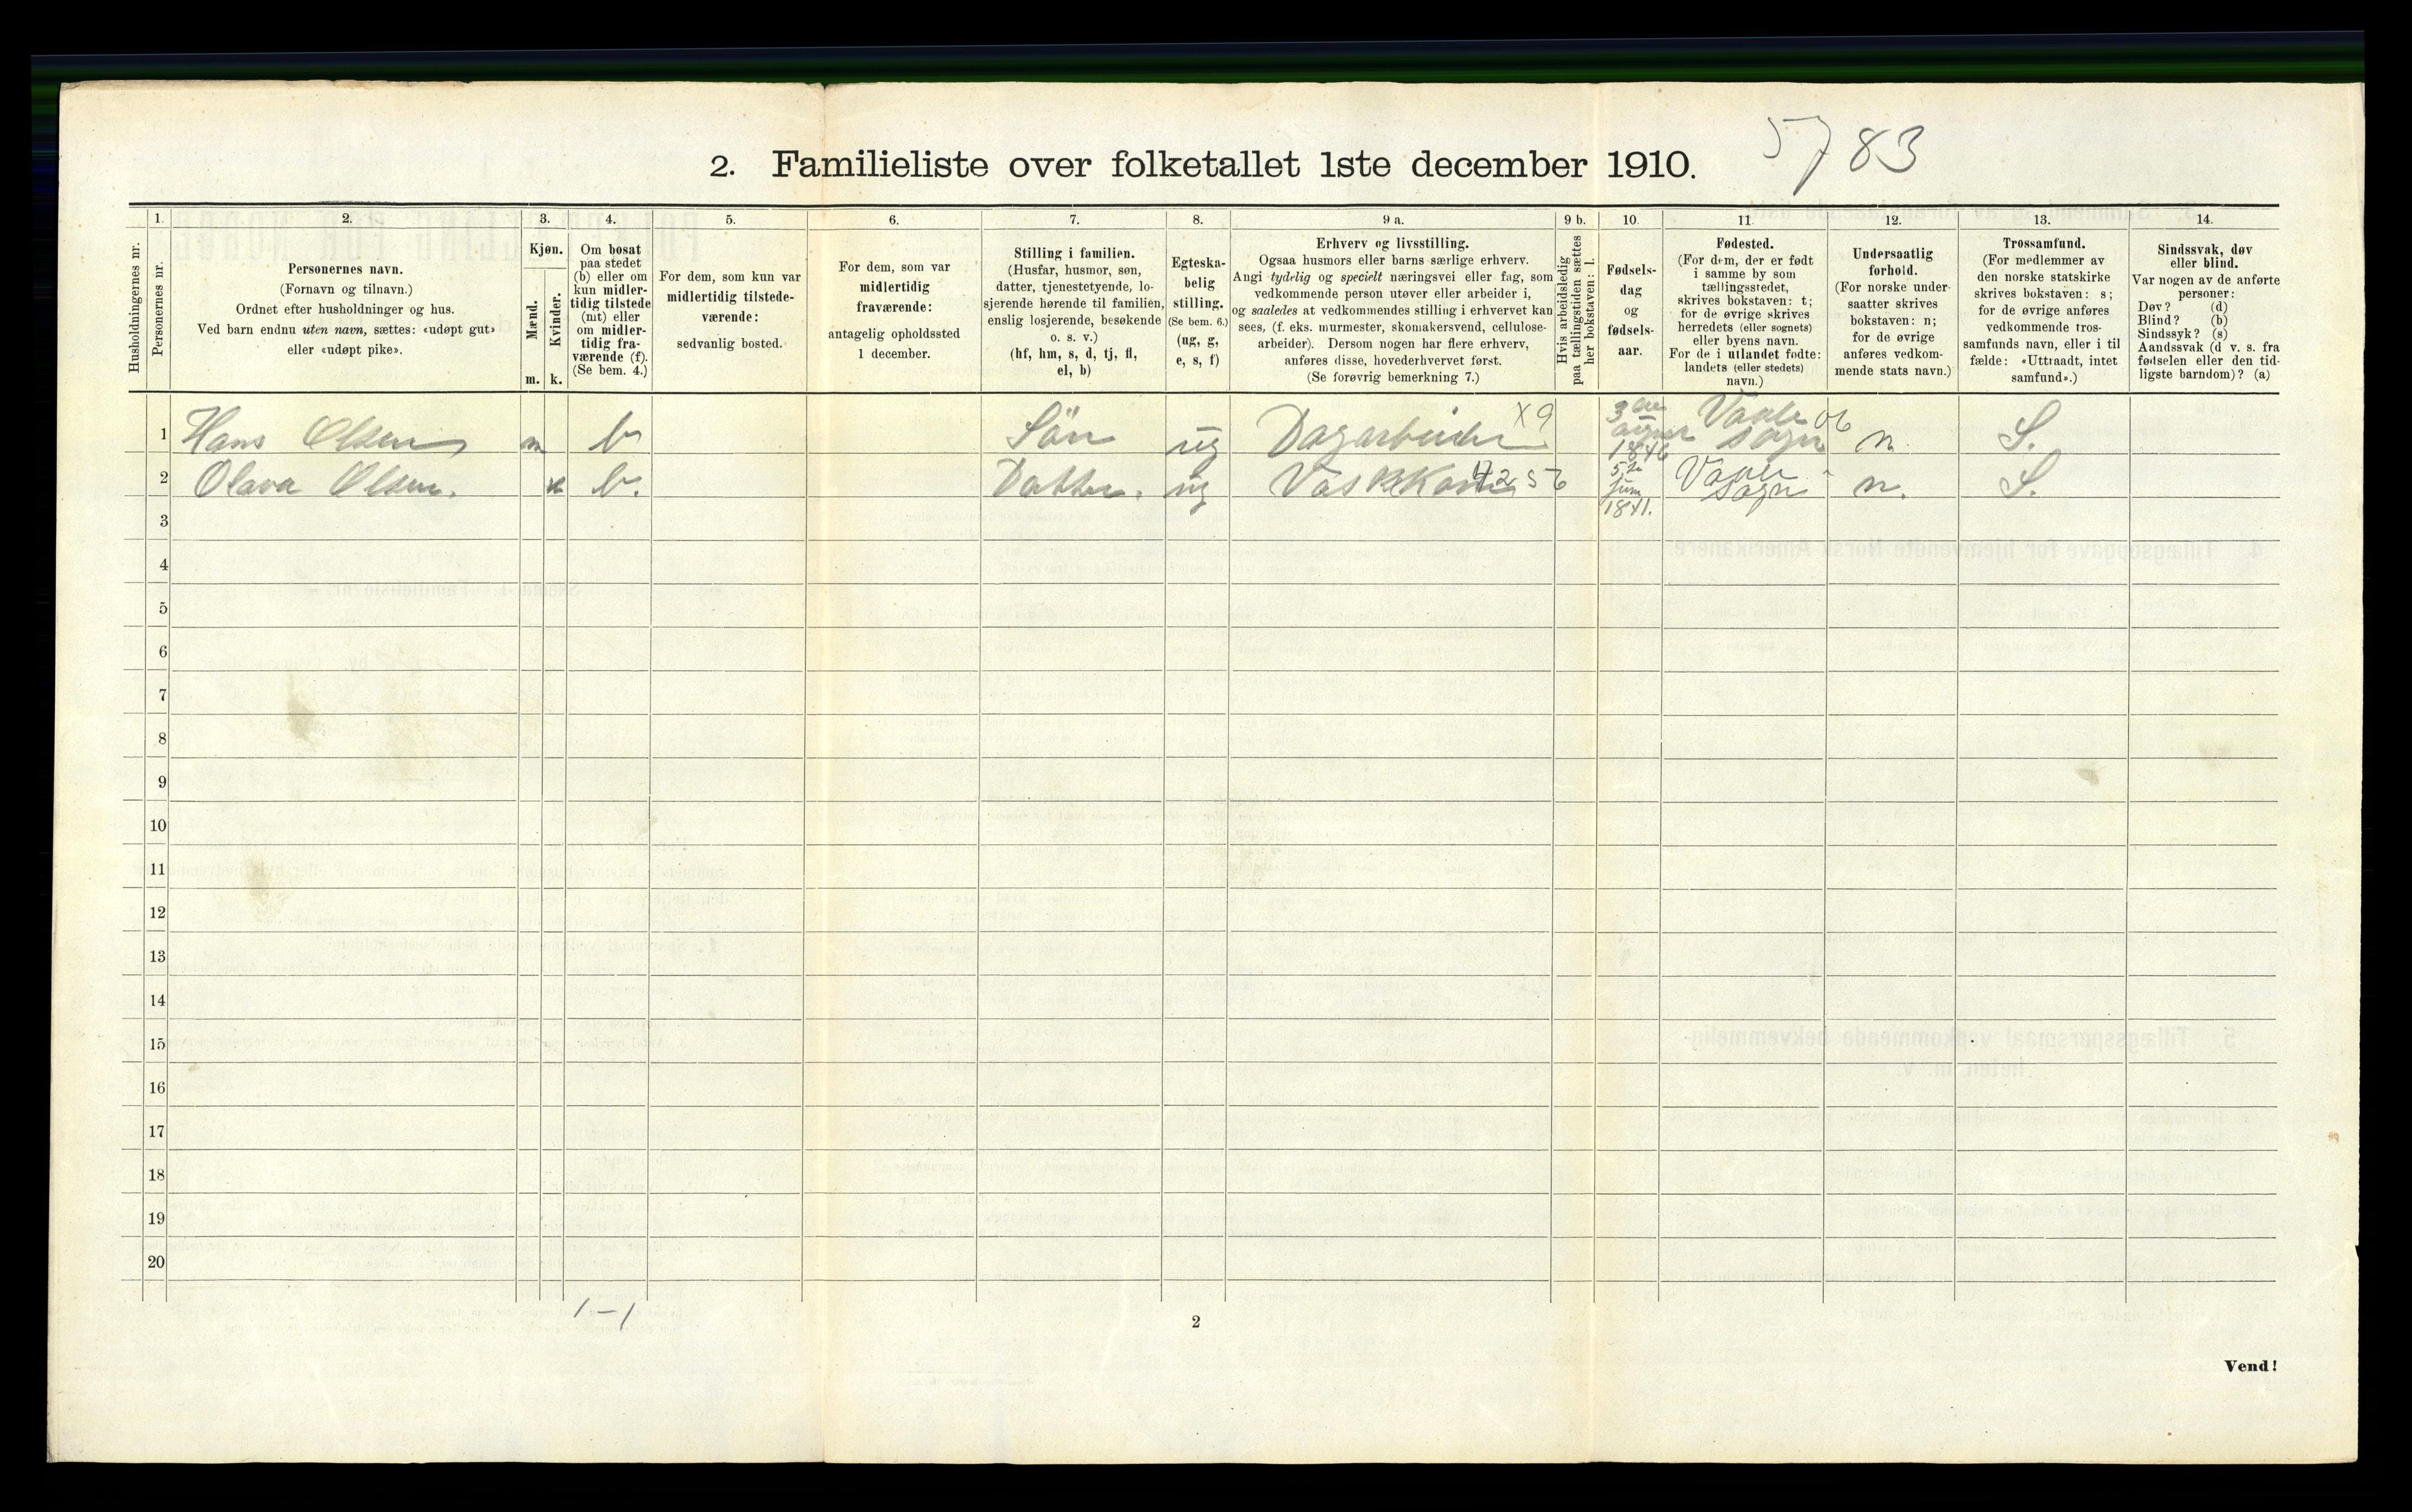 5783
2. Familieliste over folketallet 1ste december 1910.
Husholdningernes nr.
1.
Personernes nr.
2.
Personernes navn.
(Fornavn og tilnavn.)
Ordnet efter husholdninger og hus.
Ved barn endnu uten navn, sættes: «udøpt gut»
eller «udøpt pike».
3.
Kjøn.
Mænd.
Kvinder.
m. k.
4.
Om bosat
paa stedet
(b) eller om
kun midler-
tidig tilstede
(mt) eller
om midler-
tidig fra-
værende (f).
(Se bem. 4.)
5.
For dem, som kun var
midlertidig tilstede-
værende:
sedvanlig bosted.
6.
For dem, som var
midlertidig
fraværende:
antagelig opholdssted
1 december.
7.
Stilling i familien.
(Husfar, husmor, søn,
datter, tjenestetyende, lo-
sjerende hørende til familien,
enslig losjerende, besøkende
o. s. v.)
(hf, hm, s, d, tj, fl,
el, b)
8.
Egteska-
belig
stilling.
(Se bem. 6.)
(ug, g,
e, s, f)
9 a.
Erhverv og livsstilling.
Ogsaa husmors eller barns særlige erhverv.
Angi tydelig og specielt næringsvei eller fag, som
vedkommende person utøver eller arbeider i,
og saaledes at vedkommendes stilling i erhvervet kan
sees, (f. eks. murmester, skomakersvend, cellulose-
arbeider). Dersom nogen har flere erhverv,
anføres disse, hovederhvervet først.
(Se forøvrig bemerkning 7.)
9 b.
Hvis arbeidsledig
paa tællingstiden sættes
her bokstaven: l.
10.
Fødsels-
dag
og
fødsels-
aar.
11.
Fødested.
(For dem, der er født
i samme by som
tællingsstedet,
skrives bokstaven: t;
for de øvrige skrives
herredets (eller sognets)
eller byens navn.
For de i utlandet fødte:
landets (eller stedets)
navn.)
12.
Undersaatlig
forhold.
(For norske under-
saatter skrives
bokstaven: n;
for de øvrige
anføres vedkom-
mende stats navn.)
13.
Trossamfund.
(For medlemmer av
den norske statskirke
skrives bokstaven: s;
for de øvrige anføres
vedkommende tros-
samfunds navn, eller i til
fælde: «Uttraadt, intet
samfund».)
14.
Sindssvak, døv
eller blind.
Var nogen av de anførte
personer:
Døv? (d)
Blind? (b)
Sindssyk? (s)
Aandssvak (d. v. s. fra
fødselen eller den tid-
ligste barndom)? (a)
1 Hans Olsen m b Sön ug Dagarbeider X9 3 1846 Vaale Sogn 06 n. S.
2 Olava Olsen. k b. Datter. ug Vaskekone 4256 5te Juni 1841. Vaale Sogn n. S.
3
4
5
6
7
8
9
10
11
12
13
14
15
16
17
18
19
20
1–1
2
Vend!